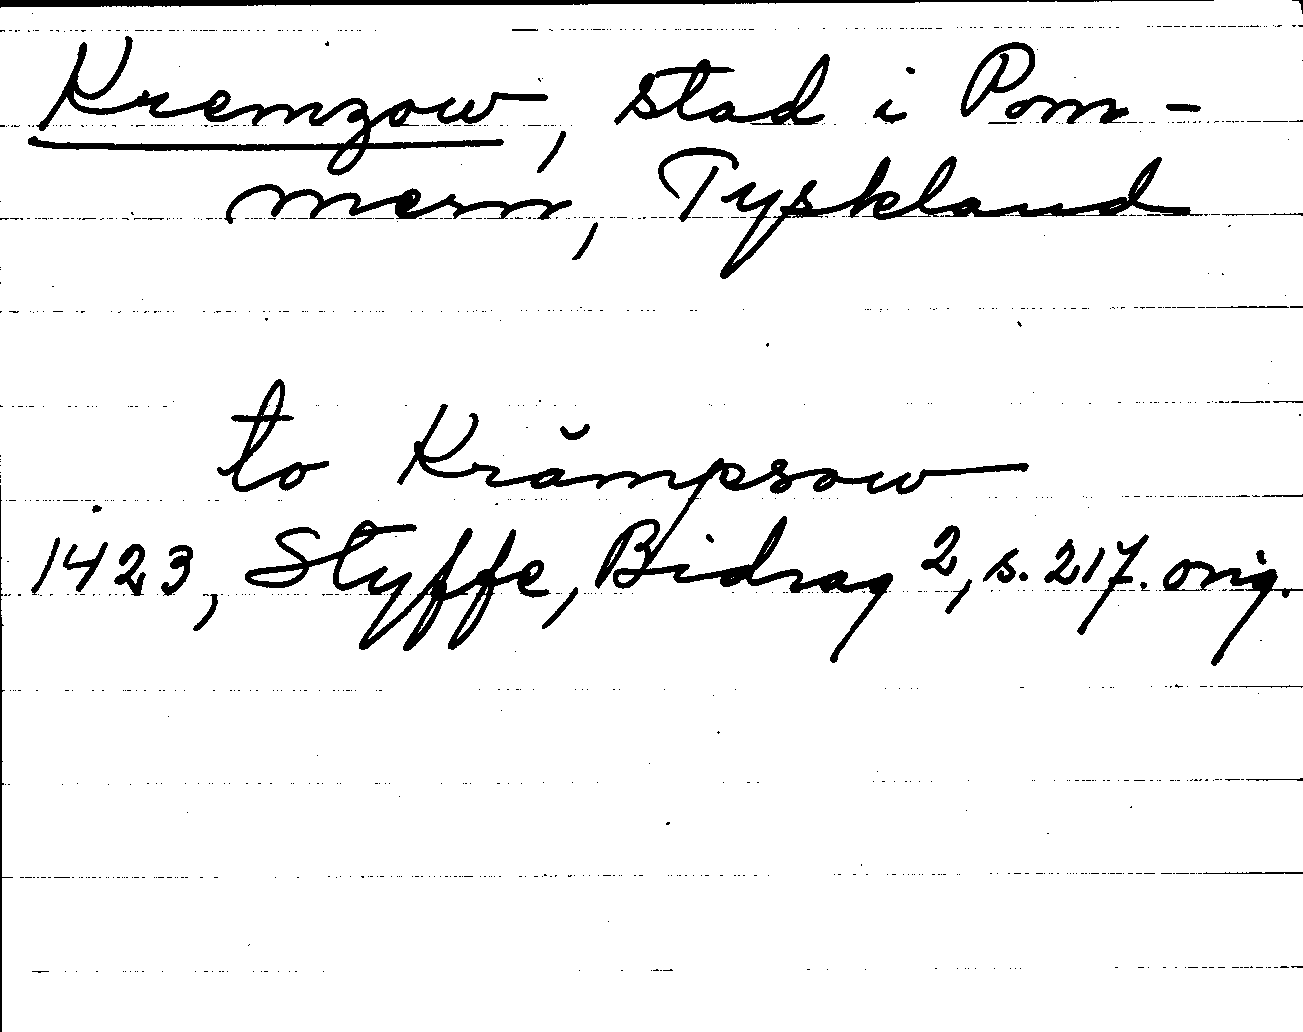 Kremzow, stad i Pom-
mern, Tyskland
to Krămpsow
1423, Styffe, Bidrag 2, s. 217. orig.